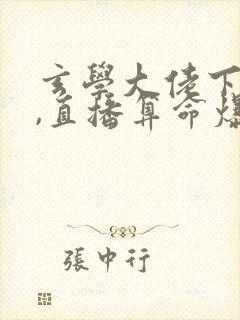 玄學大佬下
,直播算命爆
張中行